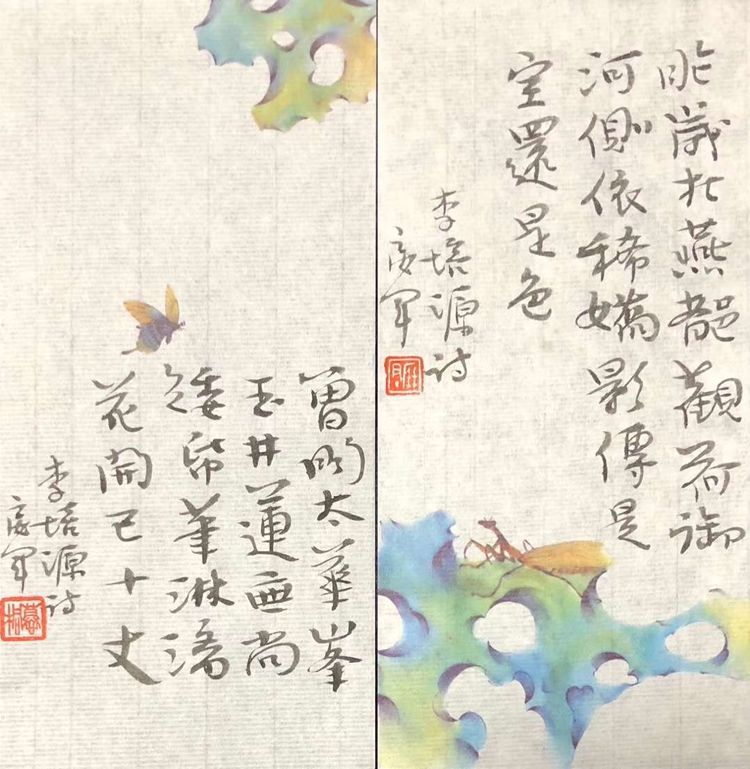 昨歲於燕都觀荷御
河側依稀嬌影傳是
空還是色
李培源詩
曾聞太華峯
玉井蓮無尚
矮紙筆淋漓
花開已十丈
李培源詩